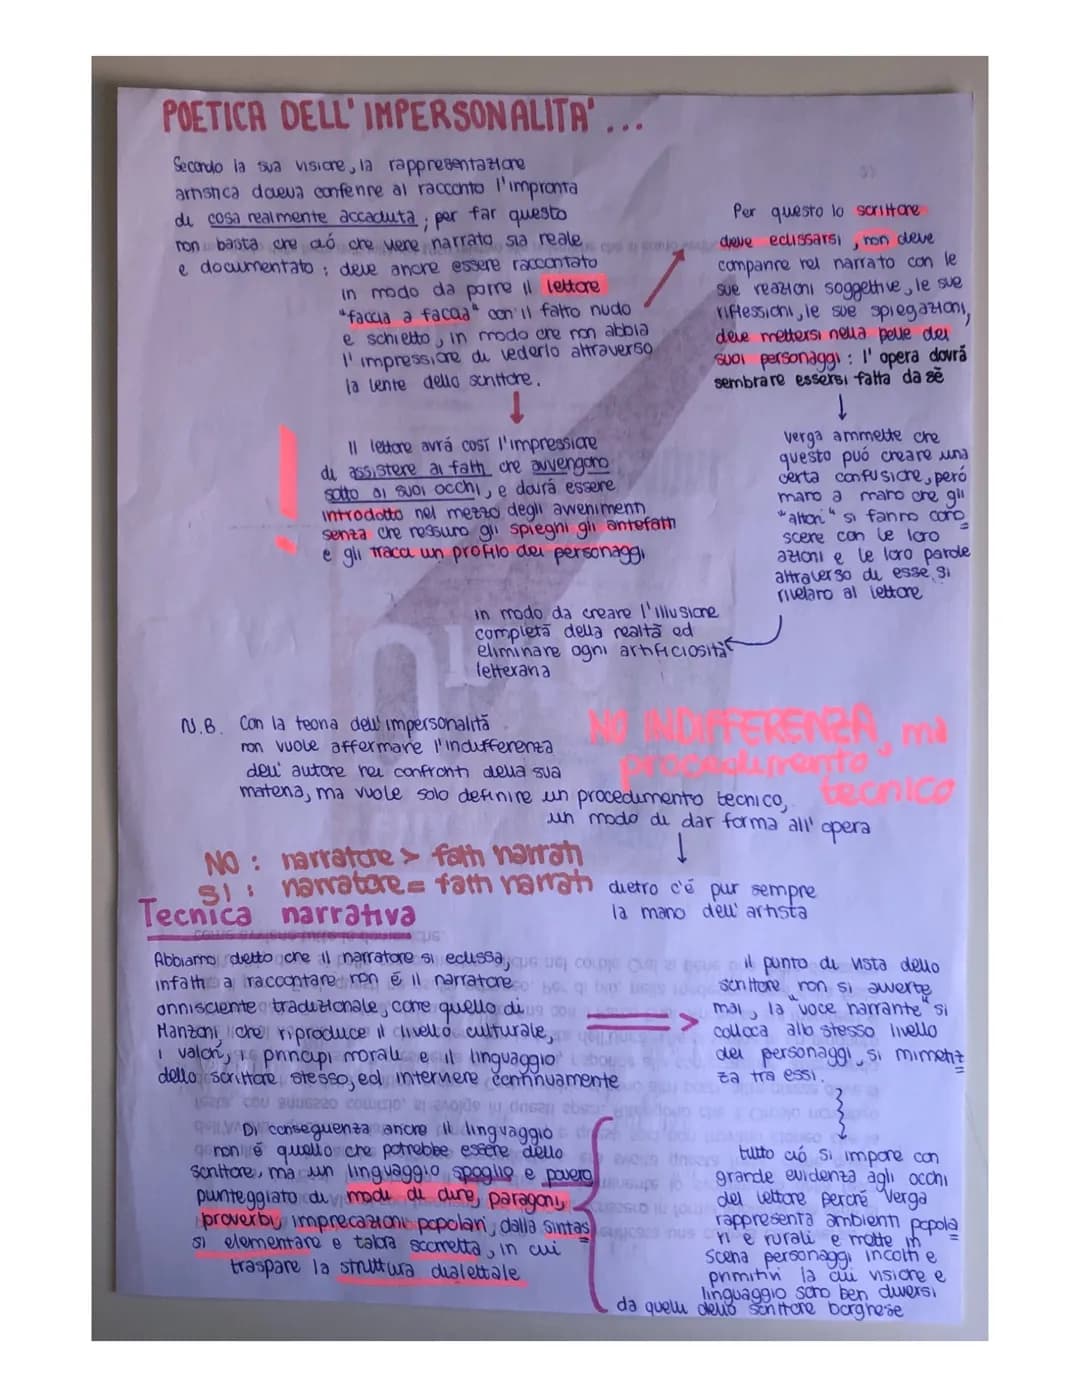 POETICA DELL' IMPERSONALITA' ...
Secondo la sua visione, la rappresentazione
artistica doveva conferire al racconto l'impronta
di cosa realmente accaduta; per far questo
non basta che ció che viene narrato sia reale
e documentato; deve anche essere raccontato
in modo da porre il lettore
"faccia a faccia" con il fatto nudo
e schietto, in modo che non abbia
l'impressione di vederlo attraverso
la lente dello scrittore.
Per questo lo scrittore
deve eclissarsi, non deve
comparire nel narrato con le
sue reazioni soggettive, le sue
riflessioni, le sue spiegazioni,
deve mettersi nella pelle dei
suoi personaggi: l'opera dovrá
sembrare essersi fatta da sé
Il lettore avrá cosí l'impressione
di assistere ai fatti che avvengono
sotto ai suoi occhi, e dovrá essere
introdotto nel mezzo degli avvenimenti
senza che nessuno gli spieghi gli antefatti
e gli tracci un profilo dei personaggi
Verga ammette che
questo puó creare una
certa confusione, peró
mano a mano che gli
"attori" si fanno cono
scere con le loro
azioni e le loro parole
attraverso di esse si
rivelano al lettore
in modo da creare l'illusione
completá della realtá ed
eliminare ogni artificiositá
letteraria
N.B. Con la teoria dell'impersonalitá
non vuole affermare l'indifferenza
dell'autore nei confronti della sua
materia, ma vuole solo definire un procedimento tecnico,
un modo di dar forma all'opera
NO INDIFFERENZA, ma
procedimento
tecnico
dietro c'é pur sempre
la mano dell'artista
NO: narratore > fatti narrati
SI: narratore = fatti narrati
Tecnica narrativa
Abbiamo detto che il narratore si eclissa,
infatti a raccontare non é il narratore
onnisciente tradizionale, come quello di
Manzoni, che riproduce il livello culturale,
i valori, i principi morali e il linguaggio
dello scrittore stesso, ed interviene continuamente
il punto di vista dello
scrittore non si avverte
mai, la "voce narrante" si
colloca allo stesso livello
dei personaggi, si mimetiz
za tra essi.
Di conseguenza anche il linguaggio
non é quello che potrebbe essere dello
scrittore, ma un linguaggio spoglio e povero
punteggiato di modi di dire, paragoni,
proverbi, imprecazioni popolari, dalla sintas
si elementare e talora scorretta, in cui
traspare la struttura dialettale
tutto ció si impone con
grande evidenza agli occhi
del lettore perché Verga
rappresenta ambienti popola
ri e rurali e mette in
scena personaggi incolti e
primitivi la cui visione e
linguaggio sono ben diversi
da quelli dello scrittore borghese